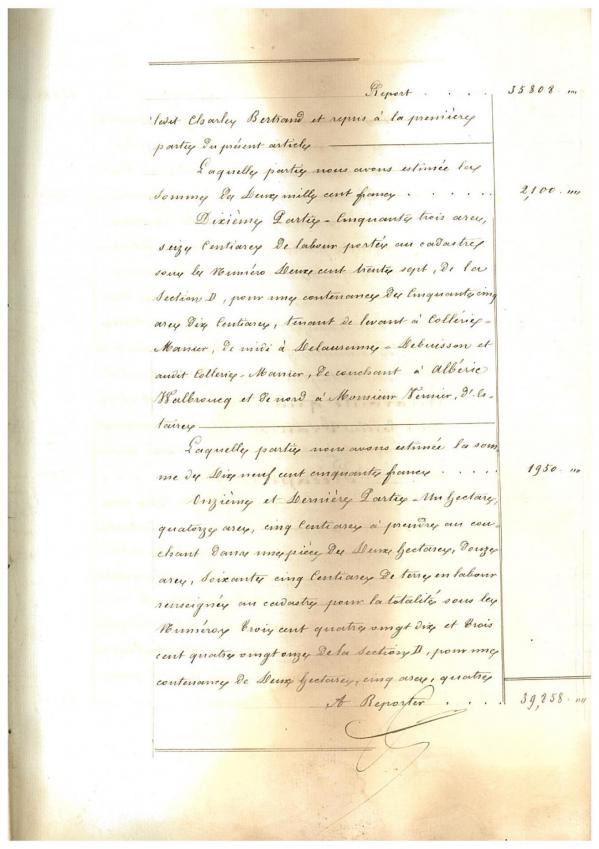 Report . . . . 35808 "
ledit Charles Bertrand et repris à la première
partie du présent article
Laquelle partie nous avons estimée la
somme de Deux mille cent francs . . . . . . 2,100 "
Dixième Partie - Cinquante trois ares,
seize Centiares de labour portés au cadastre
sous le Numéro Deux cent trente sept, de la
Section D, pour une contenance de Cinquante cinq
ares Dix Centiares, tenant de levant à Collerie-
Manier, de midi à Delausenne-Debuisson et
audit Collerie-Manier, de couchant à Albéric
Walbroucq et de nord à Monsieur Vernier, d'Es-
taires
Laquelle partie nous avons estimée la som
me de Dix neuf cent cinquante francs . . . . 1950 "
Onzième et Dernière Partie - Un Hectare,
quatorze ares, cinq Centiares à prendre au cou-
chant dans une pièce de Deux Hectares, Douze
ares, Soixante cinq Centiares de terre en labour
renseignée au cadastre pour la totalité sous les
Numéros Trois cent quatre vingt dix et trois
cent quatre vingt onze de la Section D, pour une
contenance de Deux Hectares, cinq ares, quatre
A Reporter . . . . 39,858 "